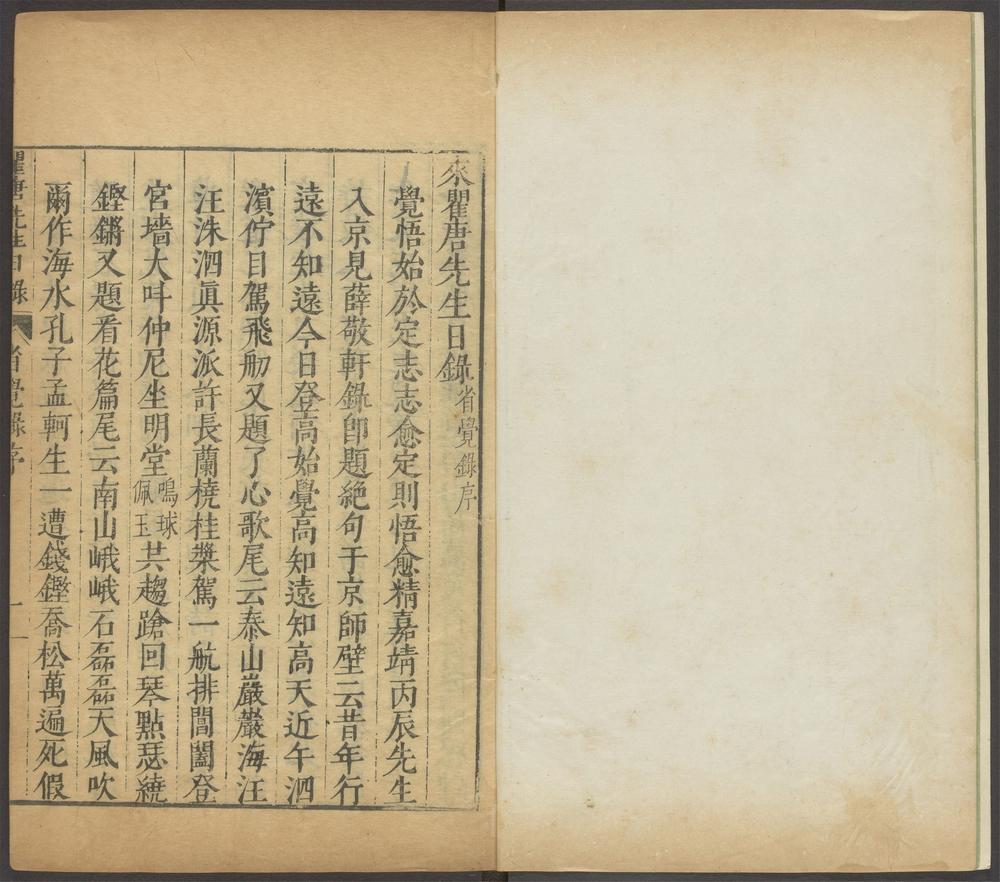 來瞿唐先生日錄省覺錄序
覺悟始於定志志愈定則悟愈精嘉靖丙辰先生
入京見薛敬軒錄卽題絶句于京師壁云昔年行
遠不知遠今日登高始覺高知遠知高天近午泗
濱佇目駕飛舠又題了心歌尾云泰山巖巖海汪
汪洙泗眞源派許長蘭橈桂槳駕一航排閶闔登
宮墻大呌仲尼坐明堂鳴球佩玉共趨蹌回琴點瑟繞
鏗鏘又題看花篇尾云南山峨峨石磊磊天風吹
爾作海水孔子孟軻生一遭錢鏗喬松萬遍死假
瞿唐先生日錄 省覺錄序 一